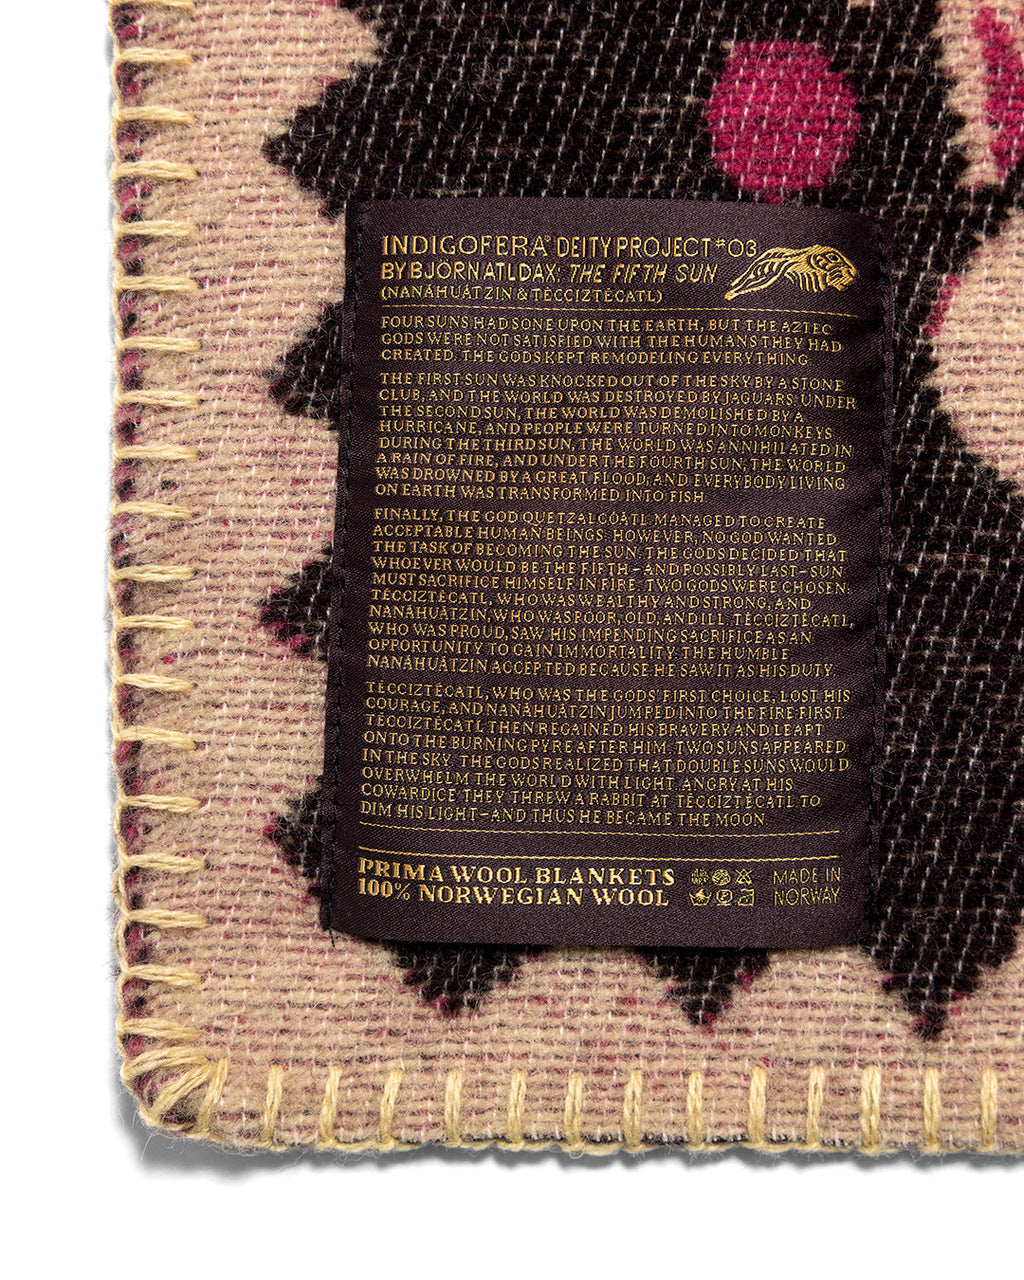 INDIGOFERA® DEITY PROJECT #03
BY BJÖRN ATLDAX: THE FIFTH SUN
(NANÁHUÁTZIN & TÉCCIZTÉCATL)
FOUR SUNS HAD SONE UPON THE EARTH, BUT THE AZTEC
GODS WERE NOT SATISFIED WITH THE HUMANS THEY HAD
CREATED. THE GODS KEPT REMODELING EVERYTHING.
THE FIRST SUN WAS KNOCKED OUT OF THE SKY BY A STONE
CLUB, AND THE WORLD WAS DESTROYED BY JAGUARS. UNDER
THE SECOND SUN, THE WORLD WAS DEMOLISHED BY A
HURRICANE, AND PEOPLE WERE TURNED INTO MONKEYS.
DURING THE THIRD SUN, THE WORLD WAS ANNIHILATED IN
A RAIN OF FIRE, AND UNDER THE FOURTH SUN, THE WORLD
WAS DROWNED BY A GREAT FLOOD, AND EVERYBODY LIVING
ON EARTH WAS TRANSFORMED INTO FISH.
FINALLY, THE GOD QUETZALCÓÁTL MANAGED TO CREATE
ACCEPTABLE HUMAN BEINGS. HOWEVER, NO GOD WANTED
THE TASK OF BECOMING THE SUN. THE GODS DECIDED THAT
WHOEVER WOULD BE THE FIFTH–AND POSSIBLY LAST–SUN
MUST SACRIFICE HIMSELF IN FIRE. TWO GODS WERE CHOSEN:
TÉCCIZTÉCATL, WHO WAS WEALTHY AND STRONG, AND
NANÁHUÁTZIN, WHO WAS POOR, OLD, AND ILL. TÉCCIZTÉCATL,
WHO WAS PROUD, SAW HIS IMPENDING SACRIFICE AS AN
OPPORTUNITY TO GAIN IMMORTALITY. THE HUMBLE
NANÁHUÁTZIN ACCEPTED BECAUSE HE SAW IT AS HIS DUTY.
TÉCCIZTÉCATL, WHO WAS THE GODS' FIRST CHOICE, LOST HIS
COURAGE, AND NANÁHUÁTZIN JUMPED INTO THE FIRE FIRST.
TÉCCIZTÉCATL THEN REGAINED HIS BRAVERY AND LEAPT
ONTO THE BURNING PYRE AFTER HIM. TWO SUNS APPEARED
IN THE SKY. THE GODS REALIZED THAT DOUBLE SUNS WOULD
OVERWHELM THE WORLD WITH LIGHT. ANGRY AT HIS
COWARDICE THEY THREW A RABBIT AT TÉCCIZTÉCATL TO
DIM HIS LIGHT–AND THUS HE BECAME THE MOON.
PRIMA WOOL BLANKETS
100% NORWEGIAN WOOL
MADE IN
NORWAY